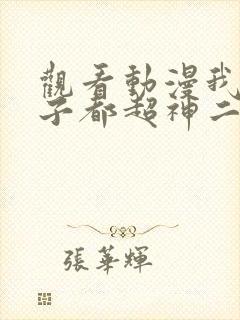 觀看動漫我
子都超神二
張華輝